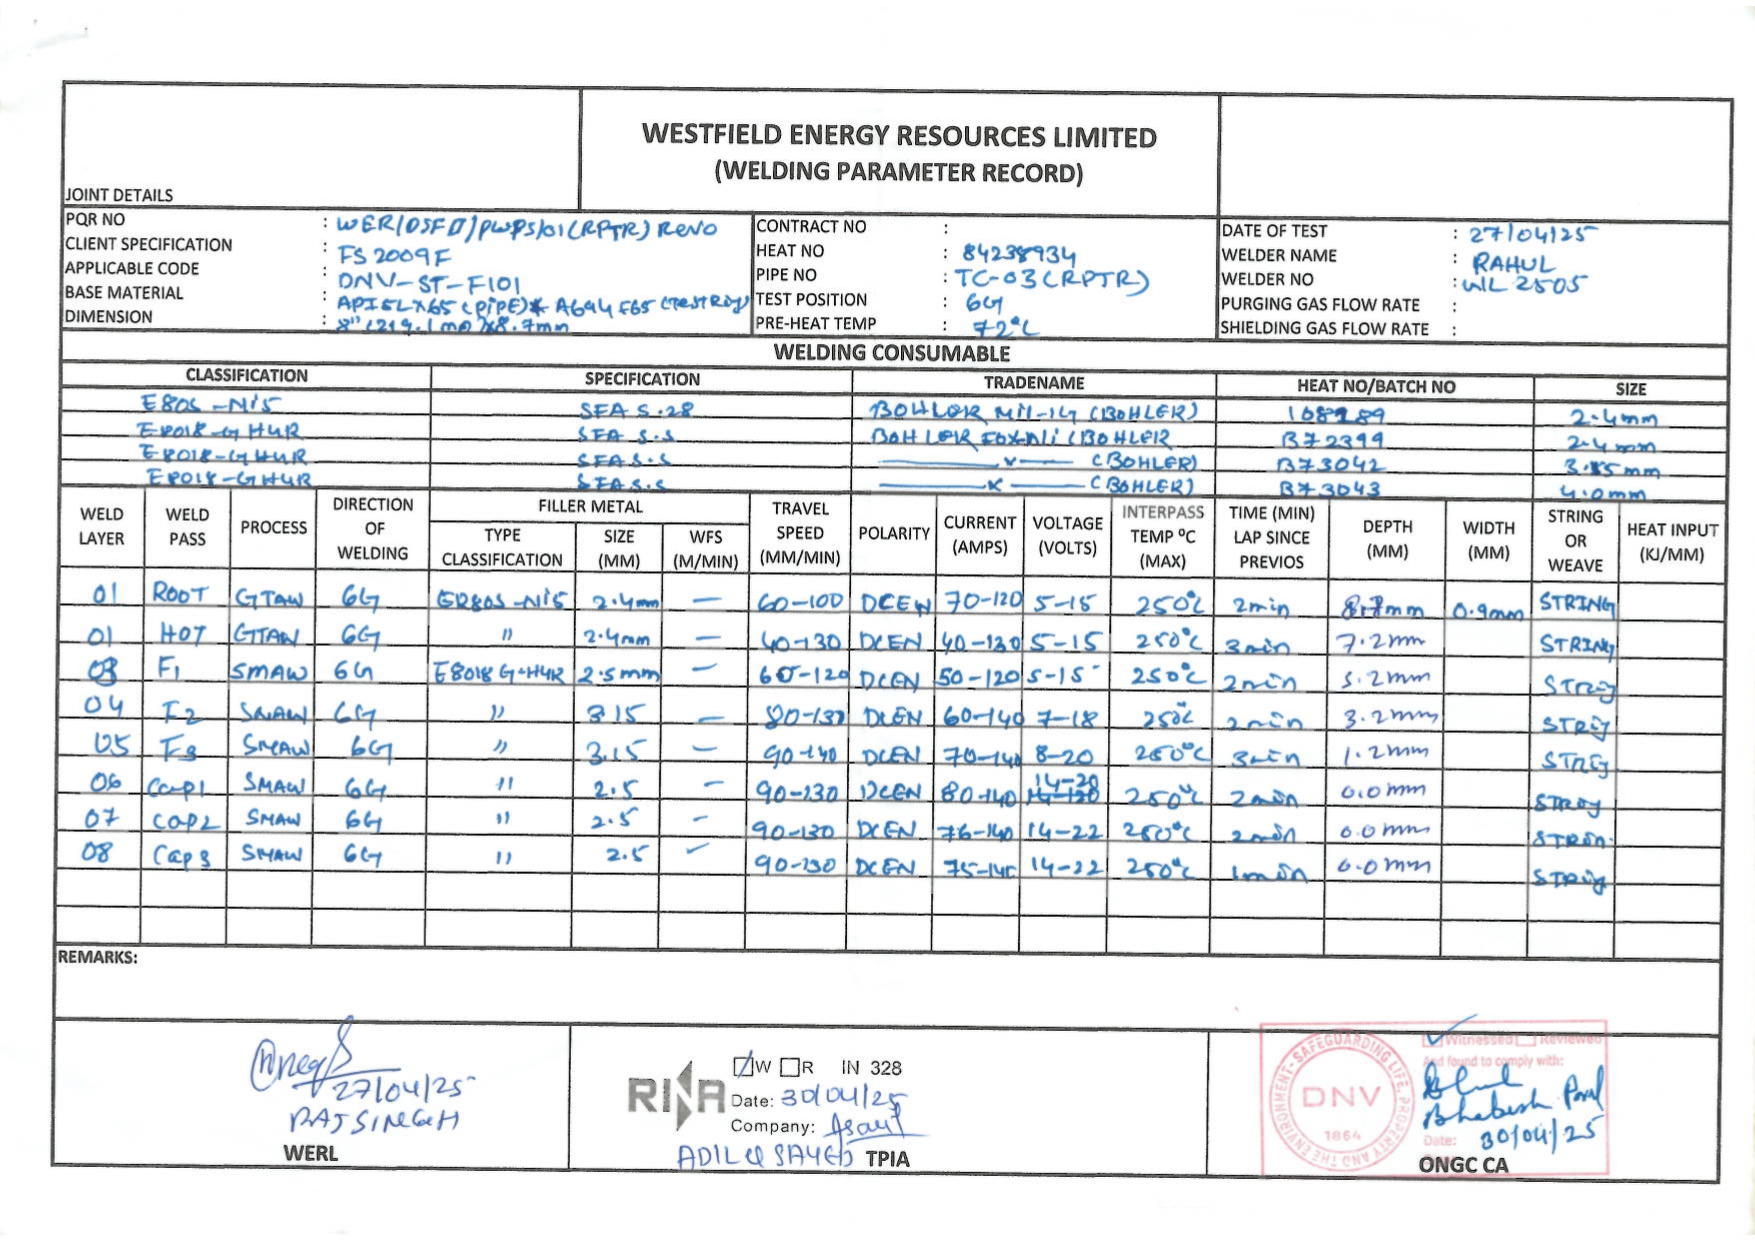 WESTFIELD ENERGY RESOURCES LIMITED
(WELDING PARAMETER RECORD)
JOINT DETAILS
PQR NO : WER/DSFD/PWPS/01(RPTR) Rev0
CLIENT SPECIFICATION : FS 2009F
APPLICABLE CODE : DNV-ST-F101
BASE MATERIAL : API5LX65 (PIPE) * A694 F65
DIMENSION : 8" (219.1 mm x 8.7mm
CONTRACT NO :
HEAT NO : 84238934
PIPE NO : TC-03 (RPTR)
TEST POSITION : 6G
PRE-HEAT TEMP : 72°C
DATE OF TEST : 27/04/25
WELDER NAME : RAHUL
WELDER NO : WL 2505
PURGING GAS FLOW RATE :
SHIELDING GAS FLOW RATE :
WELDING CONSUMABLE
CLASSIFICATION SPECIFICATION TRADENAME HEAT NO/BATCH NO SIZE
E80S-Ni5 SFA 5.28 BOHLER (BOHLER) 2.4mm
E8018-G H4R SFA 5.5 BOHLER (BOHLER B72399 2.4mm
E8018-G H4R SFA 5.5 (BOHLER) B73042 3.15mm
E8018-G H4R SFA 5.5 (BOHLER) B73043 4.0mm
WELD LAYER WELD PASS PROCESS DIRECTION OF WELDING FILLER METAL TYPE CLASSIFICATION SIZE (MM) WFS (M/MIN) TRAVEL SPEED (MM/MIN) POLARITY CURRENT (AMPS) VOLTAGE (VOLTS) INTERPASS TEMP ºC (MAX) TIME (MIN) LAP SINCE PREVIOS DEPTH (MM) WIDTH (MM) STRING OR WEAVE HEAT INPUT (KJ/MM)
01 ROOT GTAW 6G ER80S-Ni5 2.4mm — 60-100 DCEN 70-120 5-15 250°C 2min 8.7mm 0.9mm STRING
01 HOT GTAW 6G " 2.4mm — 40-130 DCEN 40-130 5-15 250°C 3min 7.2mm STRING
03 F1 SMAW 6G E8018 G-H4R 2.5mm — 60-120 DCEN 50-120 5-15 250°C 2min 5.2mm String
04 F2 SMAW 6G " 3.15 — 80-130 DCEN 60-140 7-18 250°C 2min 3.2mm String
05 F3 SMAW 6G " 3.15 — 90-140 DCEN 70-140 8-20 250°C 3min 1.2mm String
06 Cap1 SMAW 6G " 2.5 — 90-130 DCEN 80-140 14-20 250°C 2min 0.0mm String
07 Cap2 SMAW 6G " 2.5 - 90-130 DCEN 76-140 14-22 250°C 2min 0.0mm String
08 Cap3 SMAW 6G " 2.5 - 90-130 DCEN 75-140 14-22 250°C 1min 0.0mm String
REMARKS:
27/04/25
RAJ SINGH
WERL
RINA
W R IN 328
Date: 30/04/25
Company:
SAYED TPIA
SAFEGUARDING LIFE, PROPERTY AND THE ENVIRONMENT
DNV
1864
Witnessed Reviewed
And found to comply with:
Bhabesh
Date: 30/04/25
ONGC CA